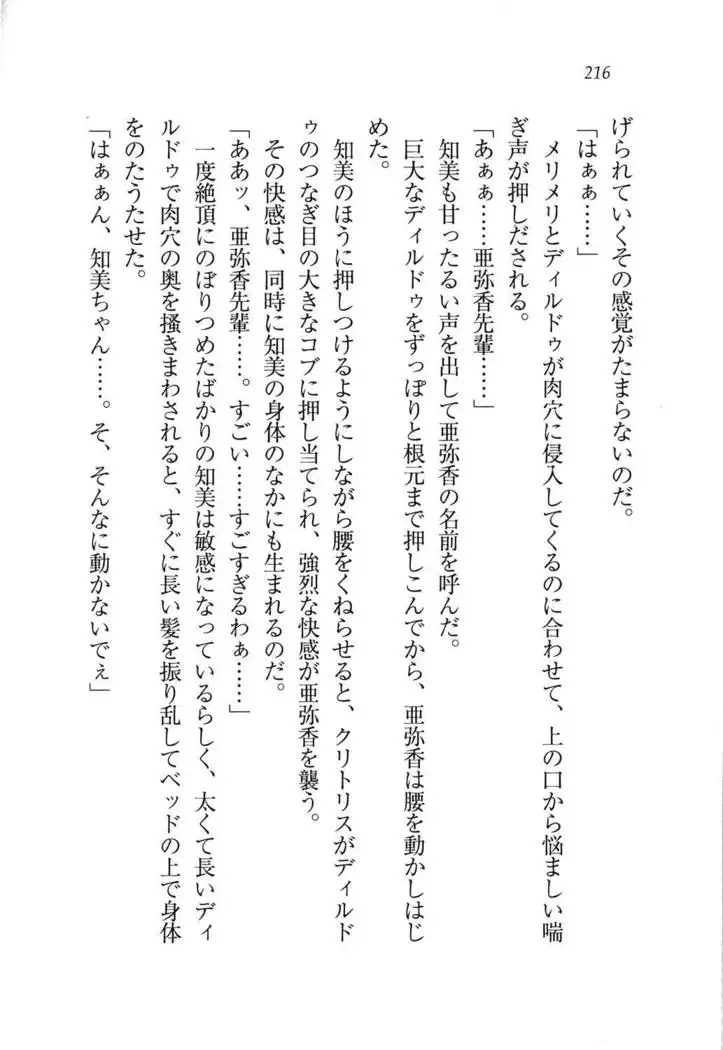 216
げられていくその感覚がたまらないのだ。
「はぁぁ……」
メリメリとディルドゥが肉穴に侵入してくるのに合わせて、上の口から悩ましい喘
ぎ声が押しだされる。
「あぁぁ……亜弥香先輩……」
知美も甘ったるい声を出して亜弥香の名前を呼んだ。
巨大なディルドゥをずっぽりと根元まで押しこんでから、亜弥香は腰を動かしはじ
めた。
知美のほうに押しつけるようにしながら腰をくねらせると、クリトリスがディルド
ゥのつなぎ目の大きなコブに押し当てられ、強烈な快感が亜弥香を襲う。
その快感は、同時に知美の身体のなかにも生まれるのだ。
「ああッ、亜弥香先輩……。すごい……すごすぎるわぁ……」
一度絶頂にのぼりつめたばかりの知美は敏感になっているらしく、太くて長いディ
ルドゥで肉穴の奥を掻きまわされると、すぐに長い髪を振り乱してベッドの上で身体
をのたうたせた。
「はぁぁん、知美ちゃん……。そ、そんなに動かないでぇ」